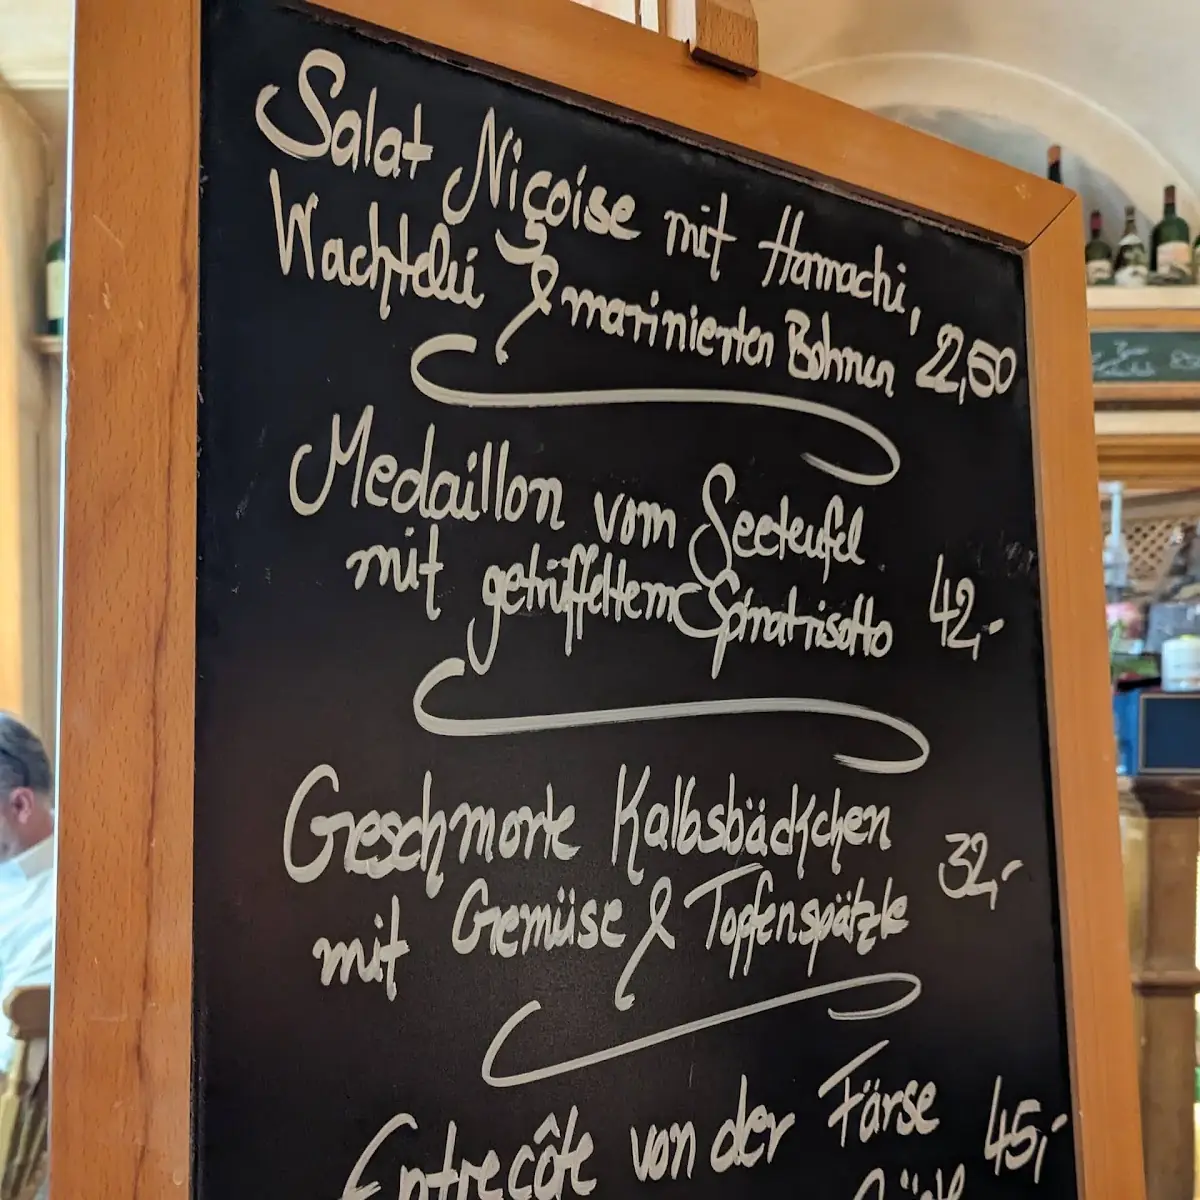 Salat Niçoise mit Hamachi,
Wachtelei & marinierten Bohnen 22,50
Medaillon vom Seeteufel
mit getrüffeltem Spinatrisotto 42,-
Geschmorte Kalbsbäckchen
mit Gemüse & Topfenspätzle 32,-
Entrecôte von der Färse 45,-